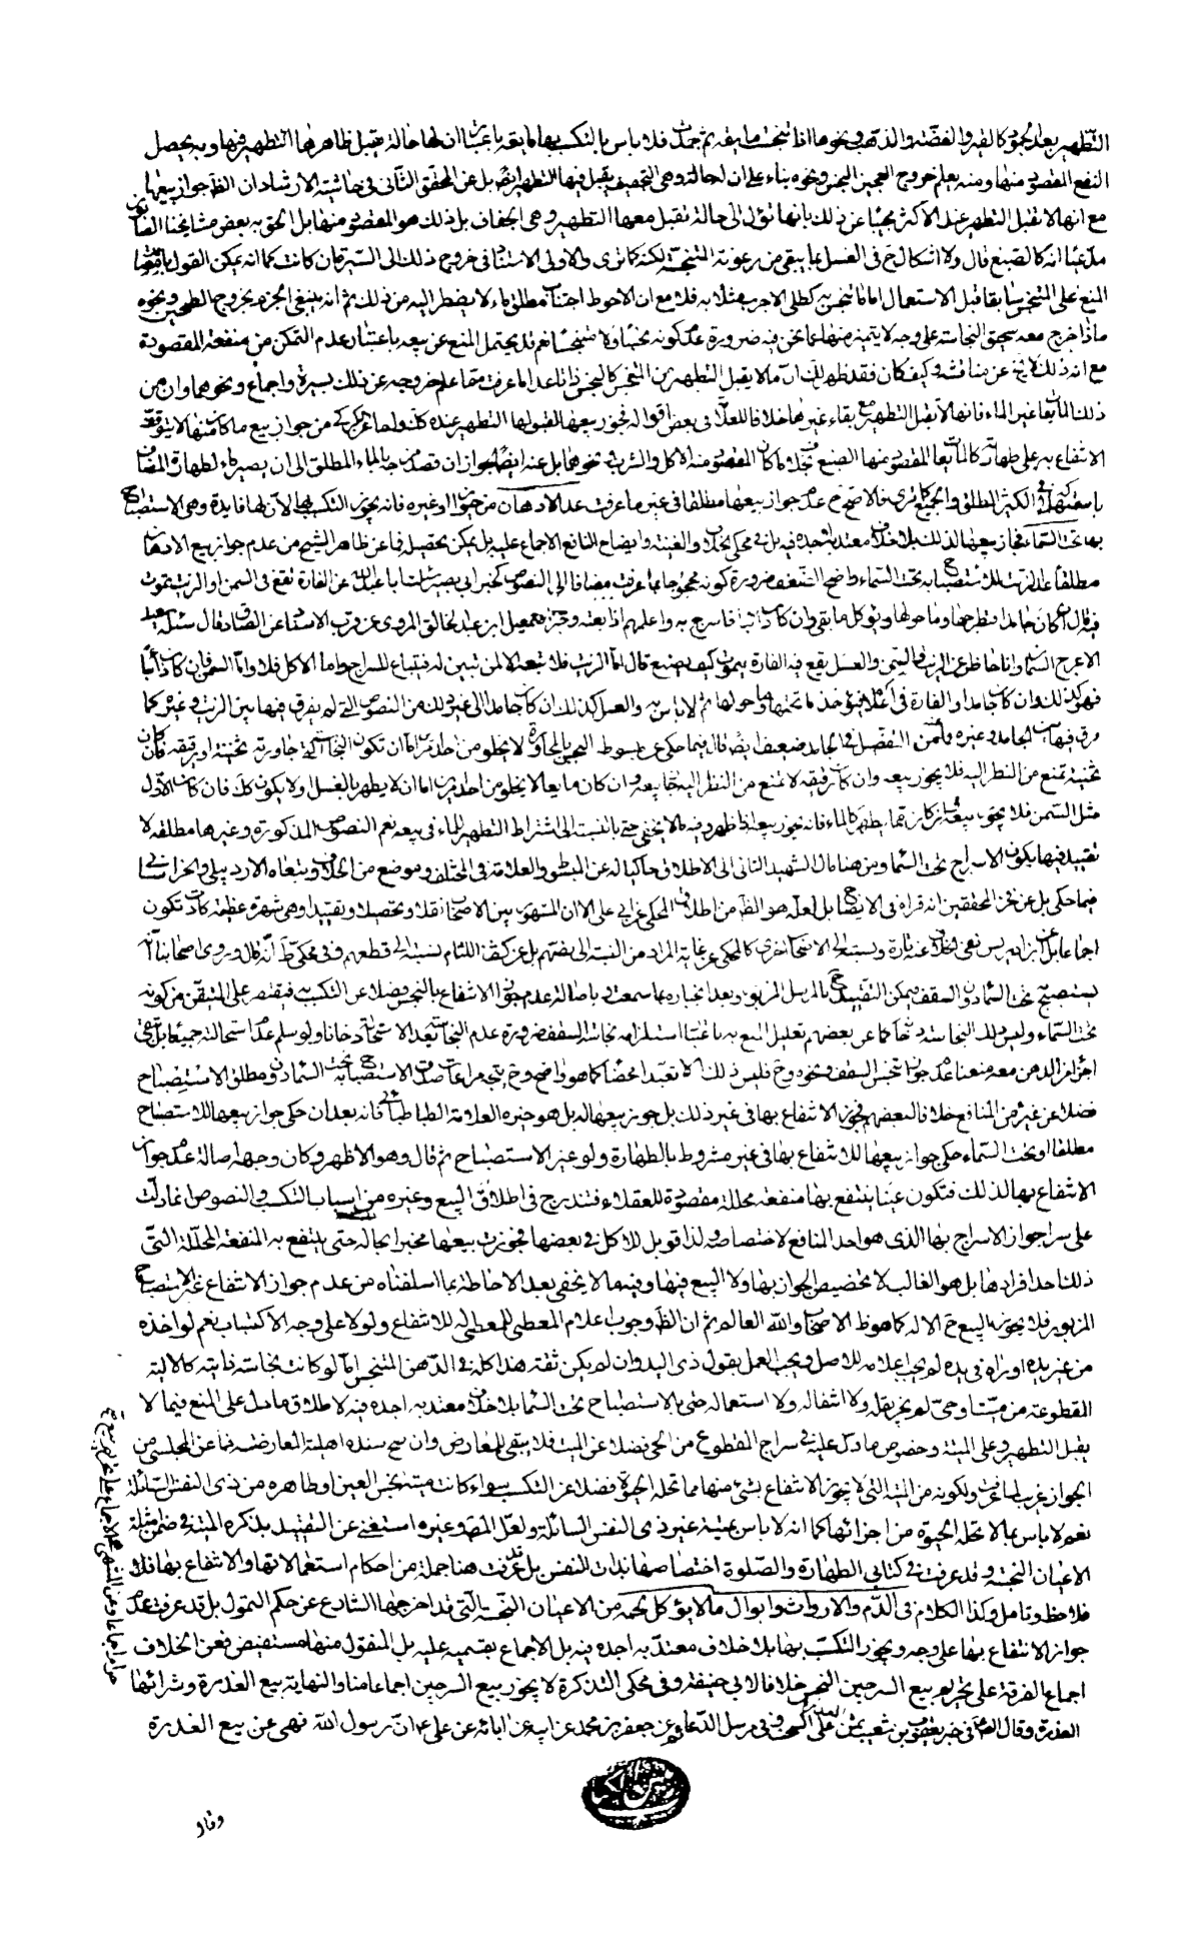 التطهير بعد الجمود كالقير والفضة والذهب ونحوها اذا تنجست مايعة ثم جمدت فلا باس بالتكسب بها مايعة باعتبار ان لها حالة يقبل ظاهرها التطهير فيها وبه يحصل
النفع المقصود منها ومنه يعلم خروج العجين النجس ونحوه بناء على ان له حالة وهي التجفيف يقبل فيها التطهير بل عن المحقق الثاني في حاشية الارشاد ان الظ جواز بيعها
مع انها لا تقبل التطهير عند الاكثر مجيبا عن ذلك بانها تؤل الى حالة تقبل معها التطهير وهي الجفاف بل ذلك هو المقصود منها بل الحق به بعض مشايخنا
مدعيا انه كالصبغ قال ولا اشكال ح في الغسل بما يبقى من رغوته المتنجسة لكنه كما ترى والاولى الاستناد في خروج ذلك الى السيرة ان كانت كما انه يمكن القول
المنع على المتنجس سابقا قبل الاستعمال اما ما تنجس به كطلي الاجرب مثلا به فلا مع ان الاحوط اجتناب مطلق ماء لا يضطر اليه من ذلك ثم انه ينبغي الجزم بخروج الطحين ونحوه
ماذا خرج معه سحيق النجاسة على وجه لا يتميز منها عما نحن فيه ضرورة عدم كونه نجسا ولا متنجسا نعم قد يحتمل المنع عن بيعه باعتبار عدم التمكن من منفعته المقصودة
مع انه ذلك لا يخ عن مناقشة وكيف كان فقد ظهر لك ان ما لا يقبل التطهير من المتنجس كالنجس ذاتا عدا ما عرفت مما علم خروجه عن ذلك بسيرة واجماع ونحوهما وان من
ذلك المايعات غير الماء فانها لا تقبل التطهير مع بقاء غيرها خلافا للعلامة في بعض اقواله فجوز بيعها لقبولها التطهير عنده من جواز بيع ما كان منها لا يتوقف
الانتفاع به على طهارته كالمايعات المقصود منها الصبغ بخلاف ما كان المقصود منه الاكل والشرب ونحوهما بل عنه ايضا جواز ان قصد مزجه بالماء المطلق الى ان يصير ماء لطهارة المضاف
في الكثير المطلق والجميع كما ترى فالاصح ح عدم جواز بيعها مطلقا في غير ما عرفت عدا الادهان من حيوان او غيره فانه يجوز التكسب بها لان لها فايدة وهي الاستصباح
بها تحت السماء فجاز بيعها لذلك بلا خلاف معتد به اجده فيه بل في محكى الخلاف والغنية وايضاح النافع الاجماع عليه بل يمكن تحصيله فما عن ظاهر الشيخ من عدم جواز بيع الادهان
مطلقا عدا الزيت للاستصباح به تحت السماء واضح الضعف ضرورة كونه محجوجا بما عرفت مضافا الى النصوص كخبر ابي بصير سئلت ابا عبد الله عن الفارة تقع في السمن او الزيت فتموت
فيه قال ان كان جامدا فتطرحها وما حولها ويؤكل ما بقي وان كان ذائبا فاسرج به واعلمهم اذا بعته وخبر اسمعيل ابن عبد الخالق المروي عن قرب الاسناد عن الصادق قال سئله سعيد
الاعرج السمان وانا حاظر عن الزيت والسمن والعسل يقع فيه الفارة فتموت كيف يصنع قال اما الزيت فلا تبعه الا لمن تبين له فيبتاع للسراج واما الاكل فلا واما السمن فان كان ذائبا
فهو كذلك وان كان جامدا والفارة في اعلاه فيؤخذ ما تحتها وما حولها ثم لا باس به والعسل كذلك ان كان جامدا الى غير ذلك من النصوص التي لم يفرق فيها بين الزيت وغيره كما
فرق فيها بين الجامد وغيره من التفصيل في الجامد ضعيف ايضا قال فيما حكى عن مبسوطه النجس بالمجاورة لا يخلو من احد امرين اما ان تكون النجاسة التي جاورته ثخينة او رقيقة فان كان
ثخينة تمنع من النظر اليه فلا يجوز بيعه وان كانت رقيقة لا تمنع من النظر اليه جاز بيعه وان كان مايعا لا يخلو من احد امرين اما ان لا يطهر بالغسل ولا يكون كك فان كان الاول
مثل السمن فلا يجوز بيعه وان كان مما يطهر كالماء فانه يجوز بيعه اذا طهر وفيه ما لا يخفى حتى بالنسبة الى اشتراط التطهير للماء في بيعه نعم النصوص المذكورة وغيرها مطلقة لا
تقييد فيها بكون الاسراج تحت السماء ومن هنا مال الشهيد الثاني الى الاطلاق حاكيا له عن المبسوط والعلامة في المختلف وموضع من الخلاف وتبعاه الاردبيلي والخراساني
فيما حكى بل عن فخر المحققين انه قراه في الايضاح بل لعله هو الظ من اطلاق المحكى عن ابي على الا ان المشهور بين الاصحاب نقلا وتحصيلا وتقييدا وهي شهرة عظيمة كادت تكون
اجماعا بل عن ابن ادريس نفى الخلاف عنه تارة ونسبته الى الاصحاب اخرى كالمحكى عن غاية المراد من النسبة الى بعضهم بل عن كشف اللثام نسبته الى قطعهم وفي محكى ط انه قال وروى اصحابنا انه
يستصبح تحت السماء دون السقف فيمكن التقييد ح بالمرسل المزبور وبعد انجباره بما سمعت بل باصالة عدم جواز الانتفاع بالنجس فضلا عن التكسب به فيقتصر على المتيقن من كونه
تحت السماء وليس ذلك لنجاسة دخانها كما عن بعضهم تعليل المنع به باعتبار استلزامه نجاسة السقف ضرورة عدم النجاسة بعد الاستحالة دخانا ولو سلم عدم استحالته جميعا بل تبقى
اجزاء الدهن معه منعنا عدم جواز تنجس السقف ونحوه وح فليس ذلك الا تعبدا محضا كما هو واضح وح يتجه مراعات صدق الاستصباح به تحت السماء دون مطلق الاستصباح
فضلا عن غيره من المنافع خلافا لبعضهم فجوز الانتفاع بها في غير ذلك بل جوز بيعها له بل هو خيره العلامة الطباطبائي فانه بعد ان حكى جواز بيعها للاستصباح
مطلقا او تحت السماء حكى جواز بيعها للانتفاع بها في غير مشروط بالطهارة ولو غير الاستصباح ثم قال وهو الاظهر وكان وجهه اصالة عدم جواز
الانتفاع بها لذلك فتكون عينا ينتفع بها منفعة محللة مقصودة للعقلاء فتندرج في اطلاق البيع وغيره من اسباب التكسب والنصوص انما دلت
على سر جواز الاسراج بها الذي هو احد المنافع لاختصاصه ولذا قوبل للاكل في بعضها فجوزت بيعها مخبرا بحاله حتى ينتفع به المنفعة المحللة التي
ذلك احد افرادها بل هو الغالب لا تخصيص الجواز بها ولا البيع فيها وفيه ما لا يخفى بعد الاحاطة بما اسلفناه من عدم جواز الانتفاع بغير الاستصباح
المزبور فلا يجوز البيع ح الا له كما هو ظ الاصحاب والله العالم ثم ان الظ وجوب اعلام المعطي للمعطى له للانتفاع ولو لا على وجه الاكتساب نعم لو اخذه
من غير يده او راه في يده لم يجب اعلامه للاصل ويجب العمل بقول ذي اليد وان لم يكن ثقة هذا كله في الدهن المتنجس اما لو كانت نجاسته ذاتية كالالية
المقطوعة من ميت او حي لم يجز نقله ولا انتقاله ولا استعماله حتى بالاستصباح تحت السماء بلا خلاف معتد به اجده فيه لاطلاق ما دل على المنع فيما لا
يقبل التطهير وعلى الميتة وخصوص ما دل عليه في سراج المقطوع من الحي فضلا عن الميت فلا يبقى للمعارض وان صح سنده اهلية المعارضة فما عن المجلسي من
الجواز غريب لما عرفت ولكونه من الميتة التي لا يجوز الانتفاع بشئ منها مما تحله الحيوة فضلا عن التكسب سواء كانت ميتة نجس العين او طاهره من ذي النفس السائلة
نعم لا باس بما لا تحله الحيوة من اجزائها كما انه لا باس بميتة غير ذي النفس السائلة ولعل المص وغيره استغنى عن التقييد بذكره الميتة في ضمن امثلة
الاعيان النجسة وقد عرفت في كتابي الطهارة والصلوة اختصاصها بذات النفس بل قد عرفت هنا جملة من احكام استعمالاتها والانتفاع بها فلا
فلاحظ وتامل وكذا الكلام في الدم والارواث وابوال ما لا يؤكل لحمه من الاعيان النجسة التي قد اخرجها الشارع عن حكم التمول بل قد عرفت عدم
جواز الانتفاع بها على وجه ويجوز التكسب بها بلا خلاف معتد به اجده فيه بل الاجماع بقسميه عليه بل المنقول منهما مستفيض فعن الخلاف
اجماع الفرقة على تحريم بيع السرجين النجس خلافا لابي حنيفة وفي محكى التذكرة لا يجوز بيع السرجين اجماعا منا والنهاية بيع العذرة وشرائها
العذرة وقال الصادق في خبر يعقوب بن شعيب ثمن العذرة من السحت وفي مرسل الدعائم عن جعفر بن محمد عن ابيه عن ابائه عن علي ع ان رسول الله نهى عن بيع العذرة
وقال